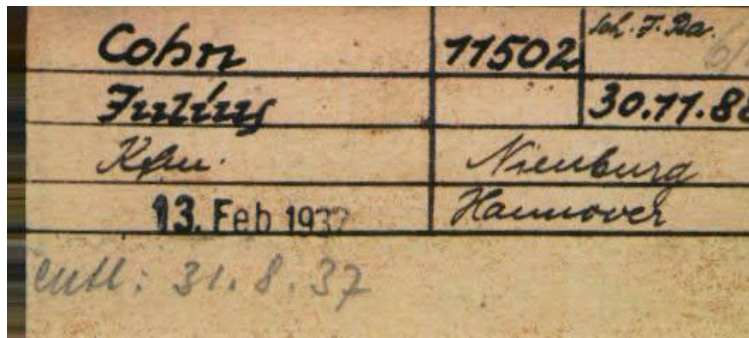 Cohn 11502 Sch. J. Ra.
Julius 30.11.8
Kfm. Nienburg
13. Feb 1937 Hannover
entl: 31.8.37